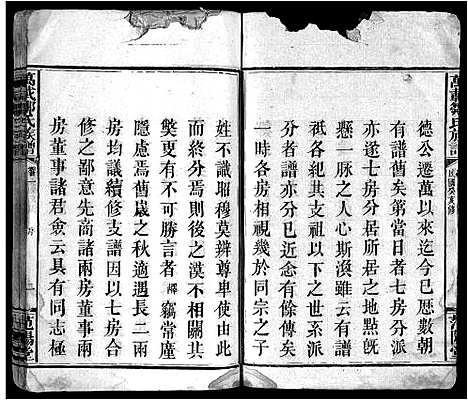 萬載鄒氏族譜
德公遷萬以來迄今已歷數朝
舊矣第當日者七房分析
亦遂七房分居所居之地點既
懸一脉之人心斯渙雖云有譜
各紀其支祖以下之世系派
別云者譜分已近愈有餘傳矣
一時各房相視幾於同宗之子
姓不識昭穆莫辯尊卑使由此
而終分焉則後之漠不相關其
獘更有不可勝言者 竊常童
隱慮焉舊歲之秋適遇長二兩
房均議續修支譜因以七房合
修之鄙意先商諸兩房董事兩
房董事諸君僉云具有同志極
萬載鄒氏族譜
范陽堂